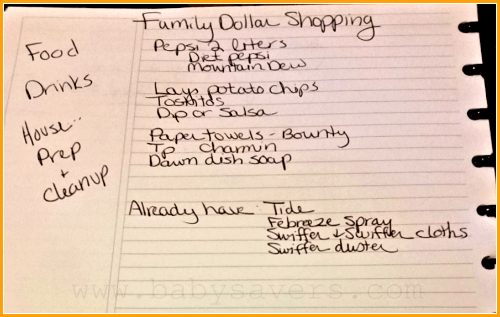 Family Dollar Shopping
Food
Drinks
House:
Prep
+
Cleanup
Pepsi 2 liters
Diet pepsi
Mountain Dew
Lays potato chips
Tostitos
Dip or Salsa
Paper towels - Bounty
TP Charmin
Dawn dish soap
Already have: Tide
Febreeze Spray
Swiffer + Swiffer cloths
Swiffer duster
www.babysavers.com